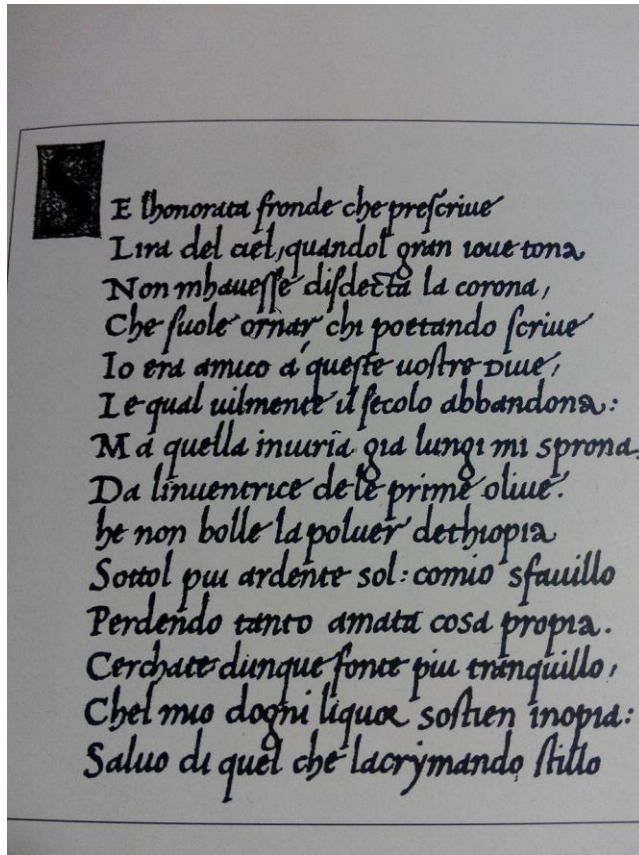 SE lhonorata fronde che preſcriue
Lira del ciel, quandol gran ioue tona
Non mhaueſſe diſdecta la corona,
Che ſuole ornar chi poetando ſcriue
Io era amico a queſte uoſtre Diue,
Le qual uilmente il ſecolo abbandona:
Ma quella iniuria gia lungi mi sprona,
Da linuentrice de le prime oliue.
he non bolle la poluer dethiopia
Sottol piu ardente sol: comio sfauillo
Perdendo tanto amata cosa propia.
Cerchate dunque fonte piu tranquillo,
Chel mio dogni liquor soſtien inopia:
Saluo di quel che lacrymando ſtillo